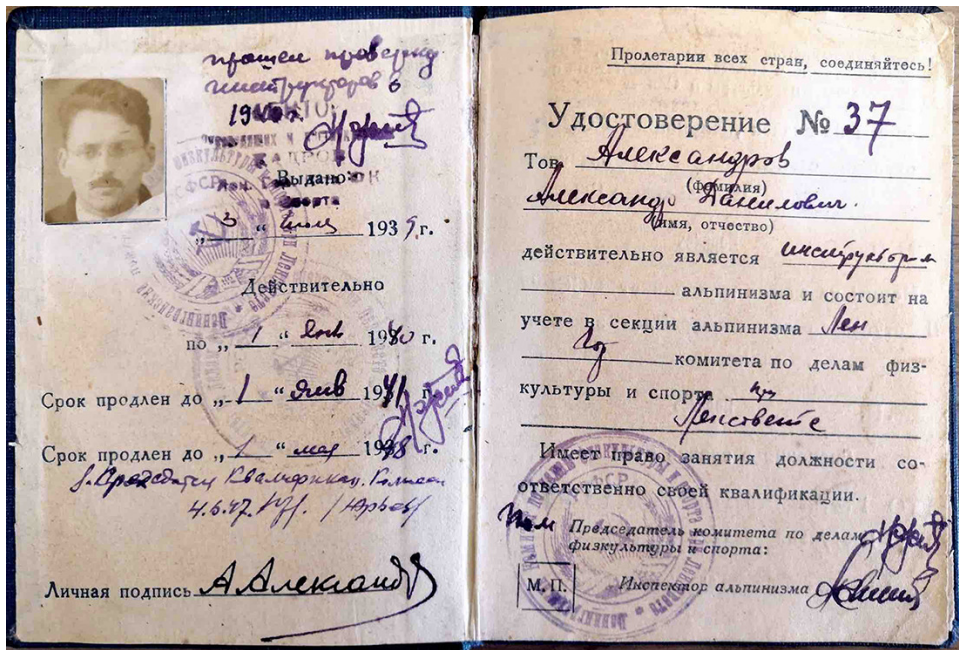 прошел проверку
инструкторов в
1940 г.
Выдано:
„ 3 “ июля 1939 г.
Действительно
по „ 1 “ Янв 1940 г.
Срок продлен до „ 1 “ Янв 1941 г.
Срок продлен до „ 1 “ мая 1948 г.
4.6.47.
/Юрьев/
Личная подпись А. Александ
Пролетарии всех стран, соединяйтесь!
Удостоверение № 37
Тов. Александров
(фамилия)
Александр Данилович.
(имя, отчество)
действительно является инструктором
альпинизма и состоит на
учете в секции альпинизма Лен
Гор комитета по делам физ-
культуры и спорта при
Ленсовете
Имеет право занятия должности со-
ответственно своей квалификации.
Председатель комитета по делам
физкультуры и спорта:
М. П. Инспектор альпинизма